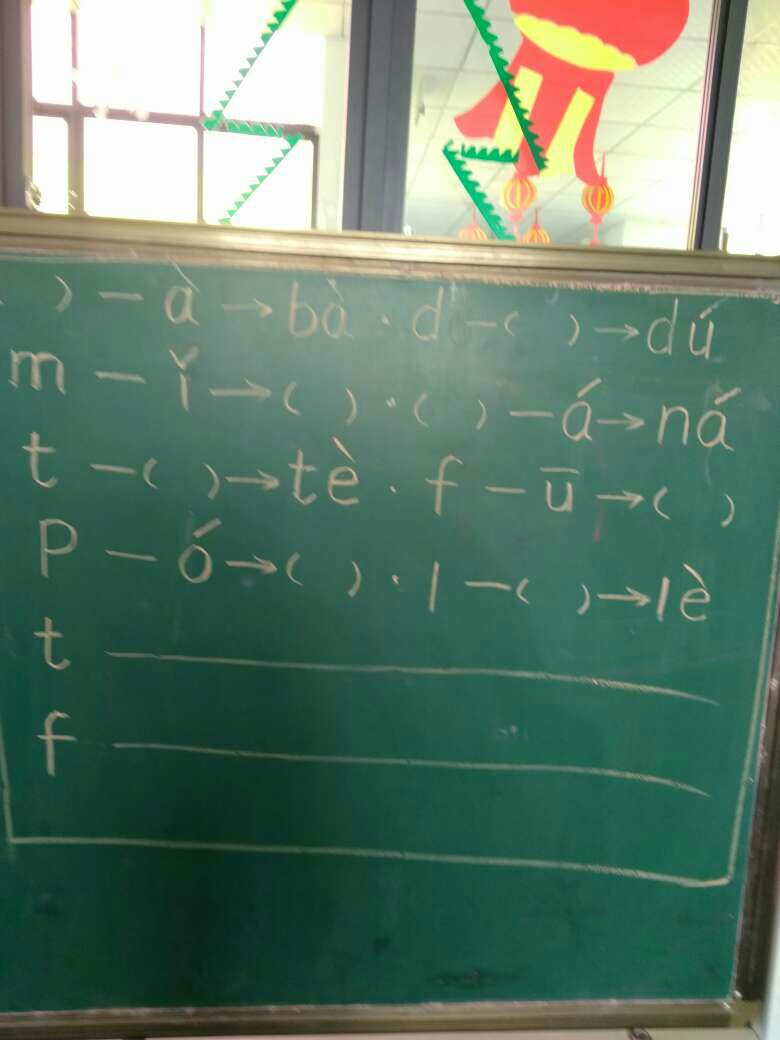 ( ) — à → bà · d — ( ) → dú
m — ǐ → ( ) · ( ) — á → ná
t — ( ) → tè · f — ū → ( )
P — ó → ( ) · l — ( ) → lè
t
f